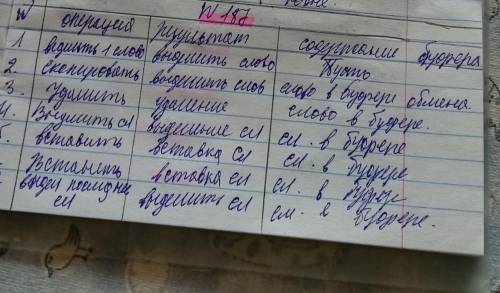 № 187
№ операция результат содержание буфера
1 выделить 1 слово выделить слово Пусто
2. Скопировать выделить слов слово в буфере обмена
3. Удалить удаление слово в буфере.
Выделить сл выделение сл сл. в буфере
вставить вставка сл сл. в буфере
Вставить вставка сл сл. в буфере
выдел последнее сл выделить сл сл. в буфере.